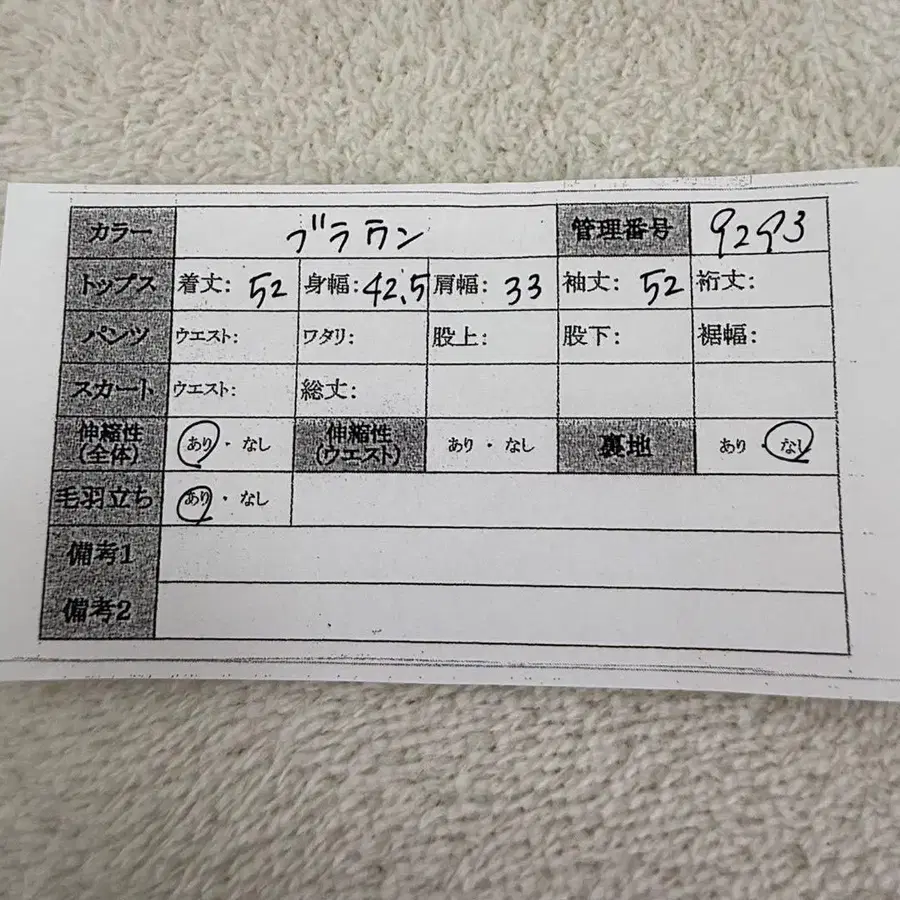 カラー ブラウン 管理番号 9293
トップス 着丈: 52 身幅: 42.5 肩幅: 33 袖丈: 52 裄丈:
パンツ ウエスト: ワタリ: 股上: 股下: 裾幅:
スカート ウエスト: 総丈:
伸縮性 (全体) あり ・ なし 伸縮性 (ウエスト) あり ・ なし 裏地 あり ・ なし
毛羽立ち あり ・ なし
備考1
備考2